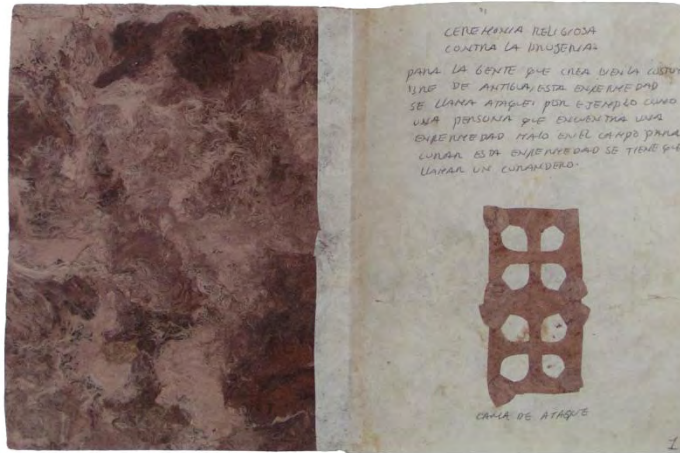 CEREMONIA RELIGIOSA
CONTRA LA BRUJERIA.
PARA LA GENTE QUE CREA BIEN LA COSTUM
BRE DE ANTIGUA, ESTA ENFERMEDAD
SE LLAMA ATAQUE: POR EJEMPLO COMO
UNA PERSONA QUE ENCUENTRA UNA
ENFERMEDAD MALO EN EL CAMPO PARA
CURAR ESTA ENFERMEDAD SE TIENE QUE
LLAMAR UN CURANDERO.
CAMA DE ATAQUE
1